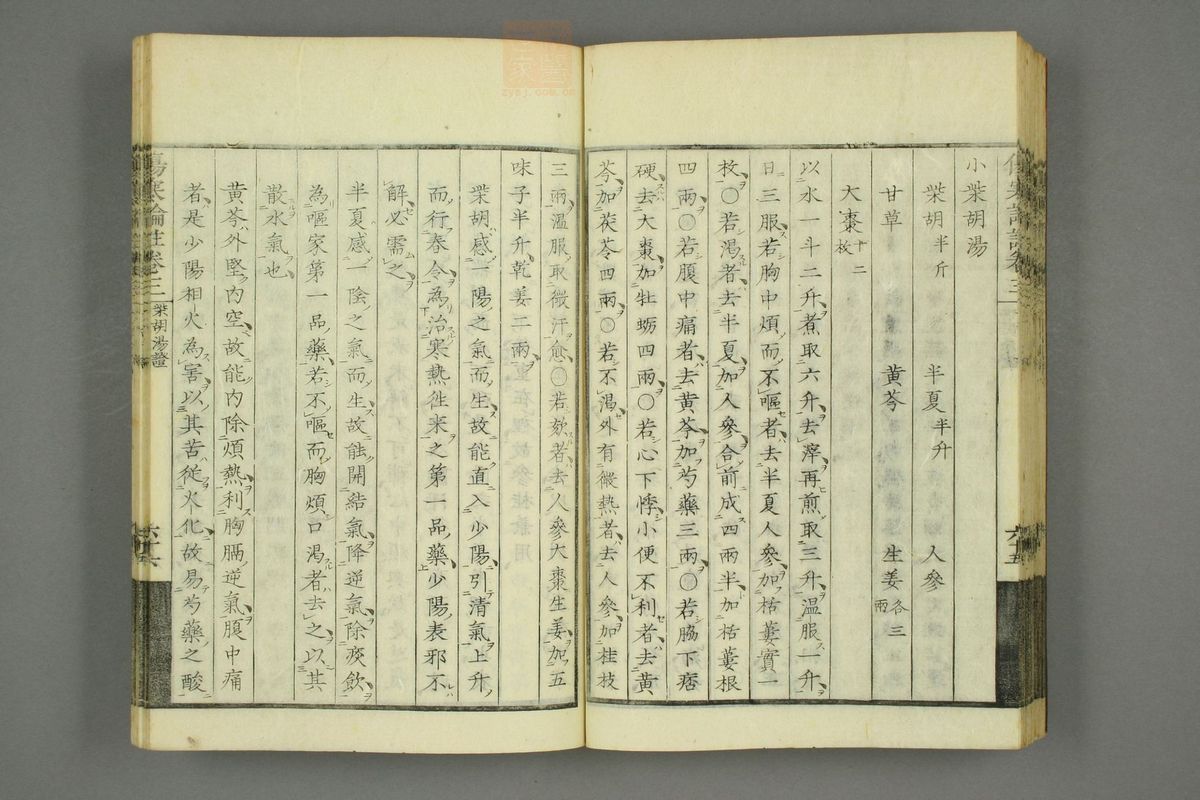 小柴胡湯
柴胡半斤 半夏半升 人參
甘草 黃芩 生姜各三兩
大棗十二枚
以水一斗二升煮取六升去滓再煎取三升溫服一升
日三服若胸中煩而不嘔者去半夏人參加栝蔞實一
枚〇若渴者去半夏加人參合前成四兩半加栝蔞根
四兩〇若腹中痛者去黃芩加芍藥三兩〇若脇下痞
硬去大棗加牡蛎四兩〇若心下悸小便不利者去黃
芩加茯苓四兩〇若不渴外有微熱者去人參加桂枝
三兩溫服取微汗愈〇若欬者去人參大棗生姜加五
味子半升乾姜二兩
柴胡感一陽之氣而生故能直入少陽引清氣上升
而行春令為治寒熱徃来之第一品藥少陽表邪不
解必需之
半夏感一陰之氣而生故能開結氣降逆氣除痰飲
為嘔家第一品藥若不嘔而胸煩口渴者去之以其
散水氣也
黃芩外堅內空故能內除煩熱利胸膈逆氣腹中痛
者是少陽相火為害以其苦從火化故易芍藥之酸
傷寒論註卷三
柴胡湯證
六十六